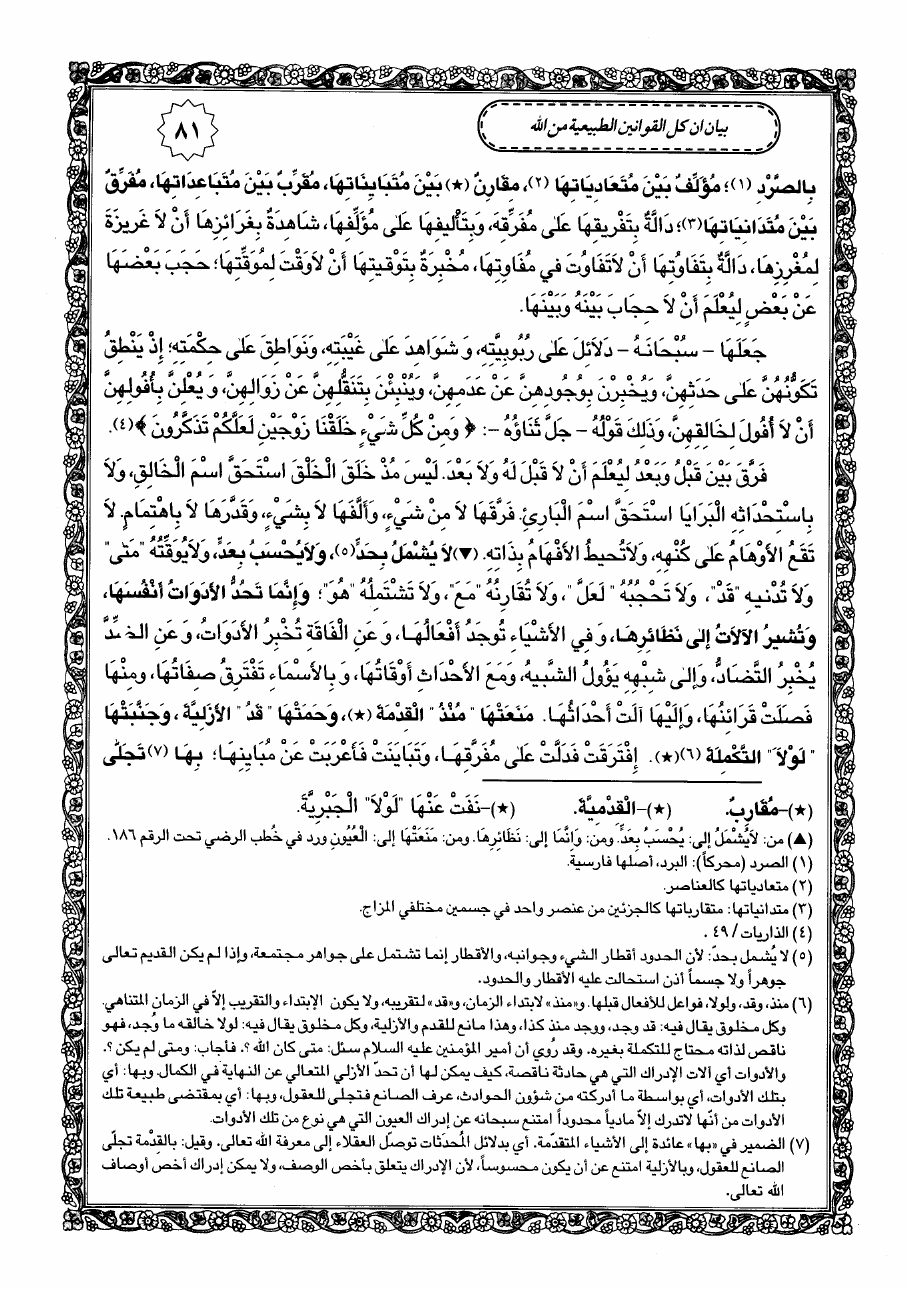 بيان ان كل القوانين الطبيعية من الله
٨١
بِالصَّرْدِ (١)؛ مُؤَلِّفٌ بَيْنَ مُتَعَادِيَاتِهَا (٢)، مقارِنٌ (★) بَيْنَ مُتَبَايِنَاتِهَا، مُقَرِّبٌ بَيْنَ مُتَبَاعِدَاتِهَا، مُفَرِّقٌ
بَيْنَ مُتَدَانِيَاتِهَا(٣)؛ دَالَّةٌ بِتَفْرِيقِهَا عَلىٰ مُفَرِّقِه، وَبِتَأْلِيفِهَا عَلىٰ مُؤَلِّفِهَا، شَاهِدَةٌ بِغَرائِزِهَا أَنْ لاَ غَرِيزَةَ
لِمُغْرِزِهَا، دَالَّةٌ بِتَفَاوُتِهَا أَنْ لاَتَفَاوُتَ فِي مُفَاوِتِهَا، مُخْبِرَةٌ بِتَوْقِيتِهَا أَنْ لاَوَقْتَ لِمُوَقِّتِهَا؛ حَجَبَ بَعْضَهَا
عَنْ بَعْضٍ لِيُعْلَمَ أَنْ لاَ حِجَابَ بَيْنَهُ وَبَيْنَهَا.
جَعَلَهَا - سُبْحَانَهُ - دَلاَئِلَ عَلىٰ رُبُوبِيَّتِهِ، وَ شَوَاهِدَ عَلىٰ غَيْبَتِهِ، وَنَوَاطِقَ عَلىٰ حِكْمَتِهِ؛ إِذْ يَنْطِقُ
تَكَوُّنُهُنَّ عَلىٰ حَدَثِهِنَّ، وَيُخْبِرْنَ بِوُجُودِهِنَّ عَنْ عَدَمِهِنَّ، وَيُنْبِئْنَ بِتَنَقُّلِهِنَّ عَنْ زَوَالِهِنَّ، وَ يُعْلِنَّ بِأُفُولِهِنَّ
أَنْ لاَ أُفُولَ لِخَالِقِهِنَّ، وَذَلِكَ قَوْلُهُ - جَلَّ ثَنَاؤُهُ -: ﴿ وَمِنْ كُلِّ شَيْءٍ خَلَقْنَا زَوْجَيْنِ لَعَلَّكُمْ تَذَكَّرُونَ ﴾(٤).
فَرَّقَ بَيْنَ قَبْلُ وَبَعْدُ لِيُعْلَمَ أَنْ لاَ قَبْلَ لَهُ وَلاَ بَعْدَ. لَيْسَ مُذْ خَلَقَ الْخَلْقَ اسْتَحَقَّ اسْمَ الْخَالِقِ، وَلاَ
بِاسْتِحْدَاثِهِ الْبَرَايَا اسْتَحَقَّ اسْمَ الْبَارِئِ. فَرَّقَهَا لاَ مِنْ شَيْءٍ، وَأَلَّفَهَا لاَ بِشَيْءٍ، وَقَدَّرَهَا لاَ بِاهْتِمَامٍ. لاَ
تَقَعُ الأَوْهَامُ عَلىٰ كُنْهِهِ، وَلاَتُحِيطُ الأَفْهَامُ بِذَاتِهِ. (▼) لاَ يُشْمَلُ بِحَدٍّ(٥)، وَلاَيُحْسَبُ بِعَدٍّ، وَلاَيُوَقِّتُهُ "مَتىٰ"
وَلاَ تُدْنِيهِ "قَدْ"، وَلاَ تَحْجُبُهُ "لَعَلَّ"، وَلاَ تُقَارِنُهُ "مَعَ"، وَلاَ تَشْتَمِلُهُ "هُوَ"؛ وَإِنَّمَا تَحُدُّ الأَدَوَاتُ أَنْفُسَهَا،
وَتُشِيرُ الآلاَتُ إِلىٰ نَظَائِرِهَا، وَ فِي الأَشْيَاءِ تُوجَدُ أَفْعَالُهَا، وَ عَنِ الْفَاقَةِ تُخْبِرُ الأَدَوَاتُ، وَ عَنِ الضِّدِّ
يُخْبِرُ التَّضَادُّ، وَإِلىٰ شِبْهِهِ يَؤُولُ الشَّبِيهُ، وَمَعَ الأَحْدَاثِ أَوْقَاتُهَا، وَ بِالأَسْمَاءِ تَفْتَرِقُ صِفَاتُهَا، وَمِنْهَا
فَصَلَتْ قَرَائِنُهَا، وَإِلَيْهَا آلَتْ أَحْدَاثُهَا. مَنَعَتْهَا "مُنْذُ" الْقِدْمَةَ (★)، وَحَمَتْهَا "قَدُ" الأَزَلِيَّةَ، وَجَنَّبَتْهَا
"لَوْلاَ" التَّكْمِلَةَ (٦)(★). اِفْتَرَقَتْ فَدَلَّتْ عَلىٰ مُفَرِّقِهَا، وَتَبَايَنَتْ فَأَعْرَبَتْ عَنْ مُبَايِنِهَا؛ بِهَا (٧) تَجَلّىٰ
(★)-مُقَارِبٌ. (★)-الْقِدْمِيَّةَ. (★)-نَفَتْ عَنْهَا "لَوْلاَ" الْجَبْرِيَّةَ.
(▲) من: لاَيُشْمَلُ إلى: يُحْسَبُ بِعَدٍّ. ومن: وَإنَّمَا إلى: نَظَائِرِهَا. ومن: مَنَعَتْهَا إلى: الْعُيُونِ ورد في خُطب الرضي تحت الرقم ١٨٦.
(١) الصرد (محركاً): البرد، أصلها فارسية.
(٢) متعادياتها كالعناصر.
(٣) متدانياتها: متقارباتها كالجزئين من عنصر واحد في جسمين مختلفي المزاج.
(٤) الذاريات / ٤٩ .
(٥) لا يُشمل بحدّ: لأن الحدود أقطار الشيء وجوانبه، والأقطار إنما تشتمل على جواهر مجتمعة، وإذا لم يكن القديم تعالى
جوهراً ولا جسماً أذن استحالت عليه الأقطار والحدود.
(٦) منذ، وقد، ولولا، فواعل للأفعال قبلها. و«منذ» لابتداء الزمان، و«قد» لتقريبه، ولا يكون الإبتداء والتقريب إلاّ في الزمان المتناهي.
وكل مخلوق يقال فيه: قد وجد، ووجد منذ كذا، وهذا مانع للقدم والأزلية، وكل مخلوق يقال فيه: لولا خالقه ما وُجد، فهو
ناقص لذاته محتاج للتكملة بغيره. وقد رُوي أن أمير المؤمنين عليه السلام سئل: متى كان الله ؟. فأجاب: ومتى لم يكن ؟.
والأدوات أي آلات الإدراك التي هي حادثة ناقصة، كيف يمكن لها أن تحدّ الأزلي المتعالي عن النهاية في الكمال. وبها: أي
بتلك الأدوات، أي بواسطة ما أدركته من شؤون الحوادث، عرف الصانع فتجلى للعقول، وبها: أي بمقتضى طبيعة تلك
الأدوات من أنّها لاتدرك إلاّ مادياً محدوداً امتنع سبحانه عن إدراك العيون التي هي نوع من تلك الأدوات.
(٧) الضمير في «بها» عائدة إلى الأشياء المتقدّمة. أي بدلائل المُحدَثات توصّل العقلاء إلى معرفة الله تعالى. وقيل: بالقِدْمة تجلّى
الصانع للعقول، وبالأزلية امتنع عن أن يكون محسوساً، لأن الإدراك يتعلق بأخص الوصف، ولا يمكن إدراك أخص أوصاف
الله تعالى.